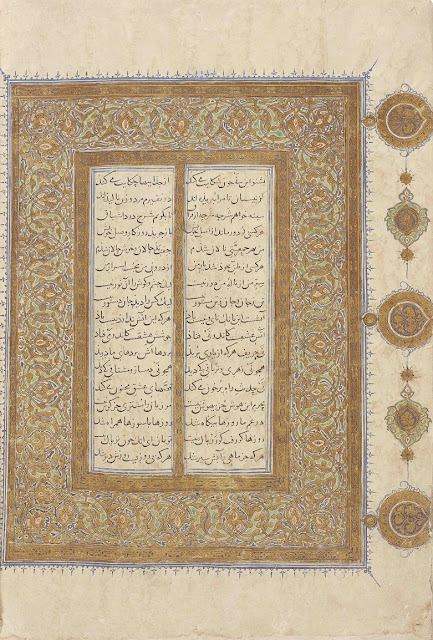 بشنو این نی چون شکایت می کند از جداییها حکایت می کند
کز نیستان تا مرا ببریده اند در نفیرم مرد و زن نالیده اند
سینه خواهم شرحه شرحه از فراق تا بگویم شرح درد اشتیاق
هر کسی کو دور ماند از اصل خویش باز جوید روزگار وصل خویش
من بهر جمعیتی نالان شدم جفت بدحالان و خوش حالان شدم
هر کسی از ظن خود شد یار من از درون من نجست اسرار من
سر من از ناله من دور نیست لیک چشم و گوش را آن نور نیست
تن ز جان و جان ز تن مستور نیست لیک کس را دید جان دستور نیست
آتشست این بانگ نای و نیست باد هر که این آتش ندارد نیست باد
آتش عشقست کاندر نی فتاد جوشش عشقست کاندر می فتاد
نی حریف هر که از یاری برید پردهااش پردهای ما درید
همچو نی زهری و تریاقی که دید همچو نی دمساز و مشتاقی که دید
نی حدیث راه پر خون می کند قصهای عشق مجنون می کند
محرم این هوش جز بیهوش نیست مر زبان را مشتری جز گوش نیست
در غم ما روزها بیگاه شد روزها با سوزها همراه شد
روزها گر رفت گو رو باک نیست تو بمان ای آنک چون تو پاک نیست
هر که جز ماهی ز آبش سیر شد هر که بی روزیست روزش دیر شد